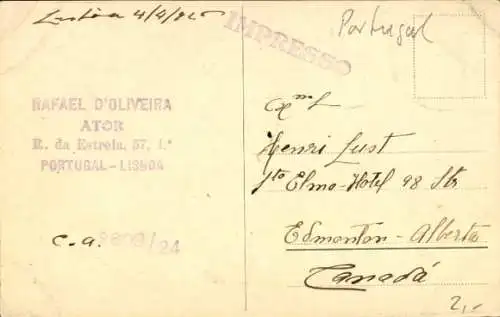 Lisboa 4/4/925
IMPRESSO
Portugal
RAFAEL D'OLIVEIRA
ATOR
R. da Estrela, 57, 1.º
PORTUGAL-LISBOA
Exmo
Henri Lust
Sto Elmo-Hotel 98 Str
Edmonton-Alberta
Canadá
C. a. /24
2,-